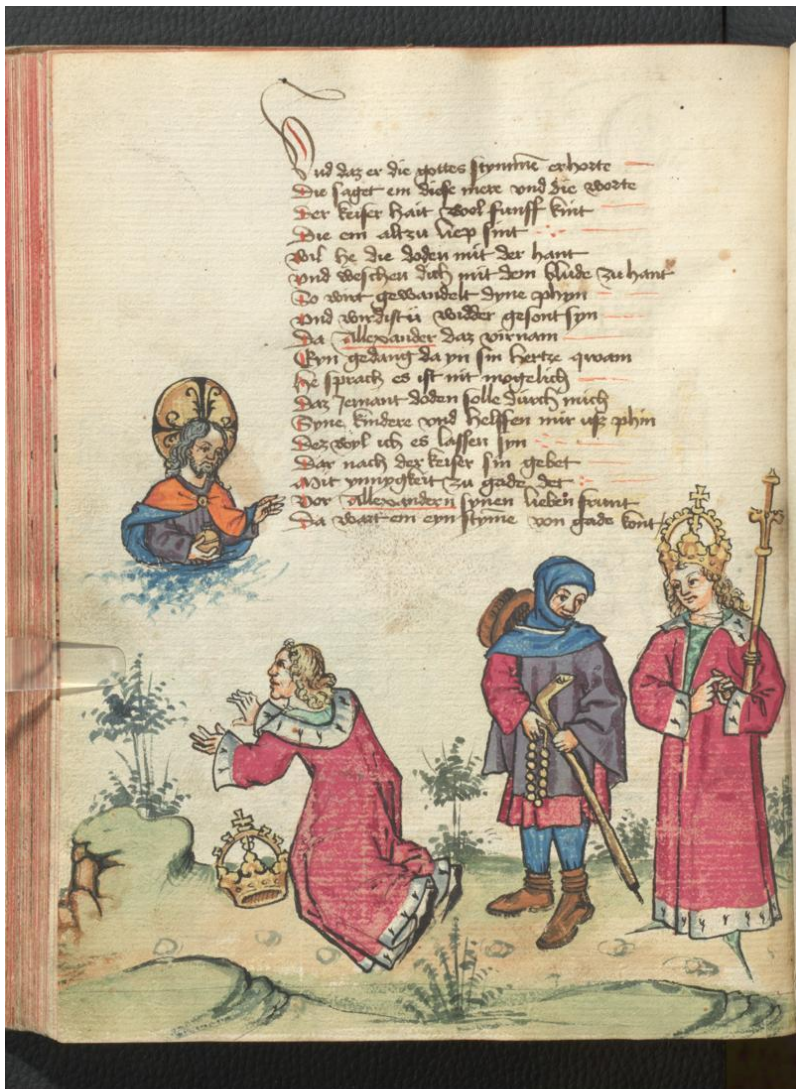 Und daz er die gottes stymme erhorte
Die saget em diese mere und die worte
Der keiser hait wol funff kint
Die em altzu liep sint
Wil he die doden mit der hant
Und weschen dich mit dem blude zu hant
So wirt gewandelt dyne phyn
Und wirdistu widder gesont syn
Da Allexander daz virnam
Eyn gedang da yn sin hertze qwam
He sprach es ist nit mogelich
Daz jemant doden solle durch mich
Syne kindere und helffen mir usz phin
Dez wyl ich es lassen syn
Dar nach der keiser sin gebet
Mit ynnygkeit zu gade det
Vor Allexandern synen lieben frunt
Da wart em eyn styme von gade kont